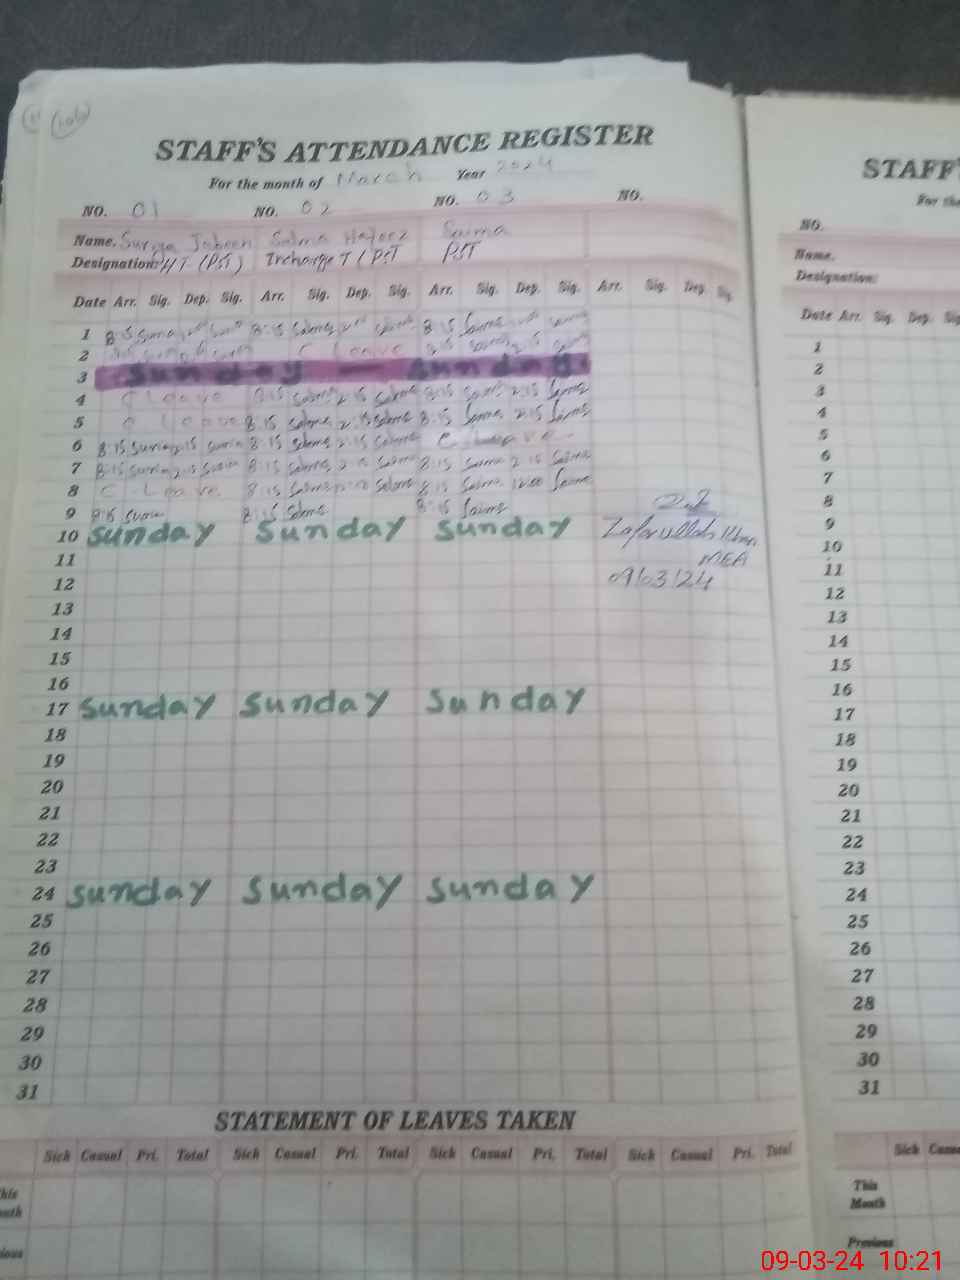 STAFF'S ATTENDANCE REGISTER
For the month of March Year 2024
NO. 01 NO. 02 NO. 03 NO.
Name. Surya Jabeen Salma Hafeez Saima
Designation: HT (PST) Incharge T / PST PST
Date Arr. Sig. Dep. Sig. Arr. Sig. Dep. Sig. Arr. Sig. Dep. Sig. Arr. Sig. Dep. Sig.
1 8:15 8:15 Salma 8:15 Saima
2 C Leave 8:15 Saima 2:15
3 Sunday Sunday
4 C Leave 8:15 Salma 2:15 Salma 8:15 Saima 2:15 Saima
5 C Leave 8:15 Salma 2:15 Salma 8:15 Saima 2:15 Saima
6 8:15 2:15 8:15 Salma 2:15 Salma C Leave
7 8:15 2:15 8:15 Salma 2:15 Salma 8:15 Saima 2:15 Saima
8 C Leave 8:15 Salma 12:00 Salma 8:15 Saima 12:00 Saima
9 8:15 8:15 Salma 8:15 Saima
10 Sunday Sunday Sunday
Zafarullah Khan
MEA
09/03/24
11
12
13
14
15
16
17 Sunday Sunday Sunday
18
19
20
21
22
23
24 Sunday Sunday Sunday
25
26
27
28
29
30
31
STATEMENT OF LEAVES TAKEN
Sick Casual Pri. Total Sick Casual Pri. Total Sick Casual Pri. Total Sick Casual Pri. Total
STAFF'
For the
NO.
Name.
Designation:
Date Arr. Sig. Dep. Sig.
1
2
3
4
5
6
7
8
9
10
11
12
13
14
15
16
17
18
19
20
21
22
23
24
25
26
27
28
29
30
31
Sick
This
Month
Previous
09-03-24 10:21